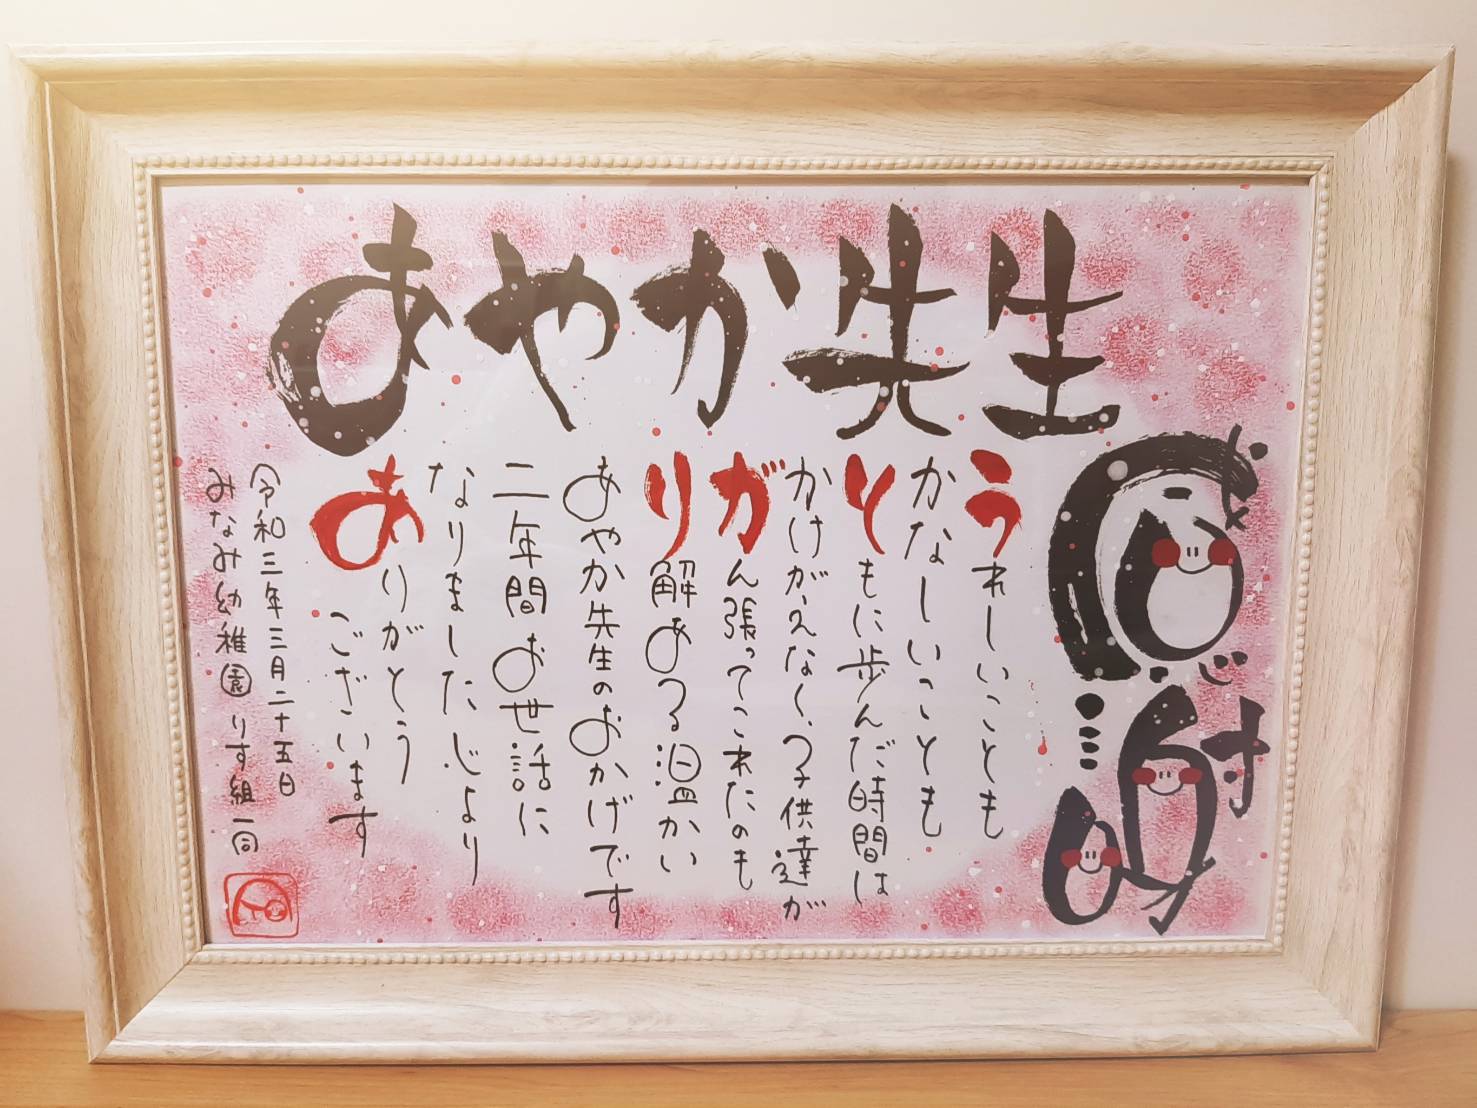 あやか先生
うれしいことも
かなしいことも
ともに歩んだ時間は
かけがえなく、子供達が
がん張ってこれたのも
り解ある温かい
あやか先生のおかげです
二年間お世話に
なりました心より
ありがとう
ございます
令和三年三月二十五日
みなみ幼稚園りす組一同